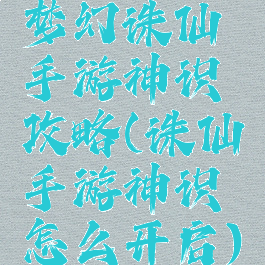 梦幻诛仙
手游神识
攻略(诛仙
手游神识
怎么开启)